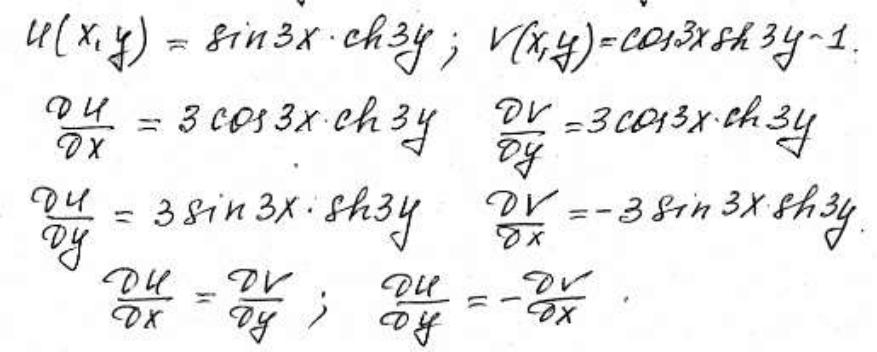 u(x,y) = sin3x·ch3y; v(x,y)=cos3x sh3y-1.
∂u/∂x = 3cos3x·ch3y ∂v/∂y =3cos3x·ch3y
∂u/∂y = 3sin3x·sh3y ∂v/∂x =-3sin3x·sh3y.
∂u/∂x = ∂v/∂y; ∂u/∂y = -∂v/∂x.